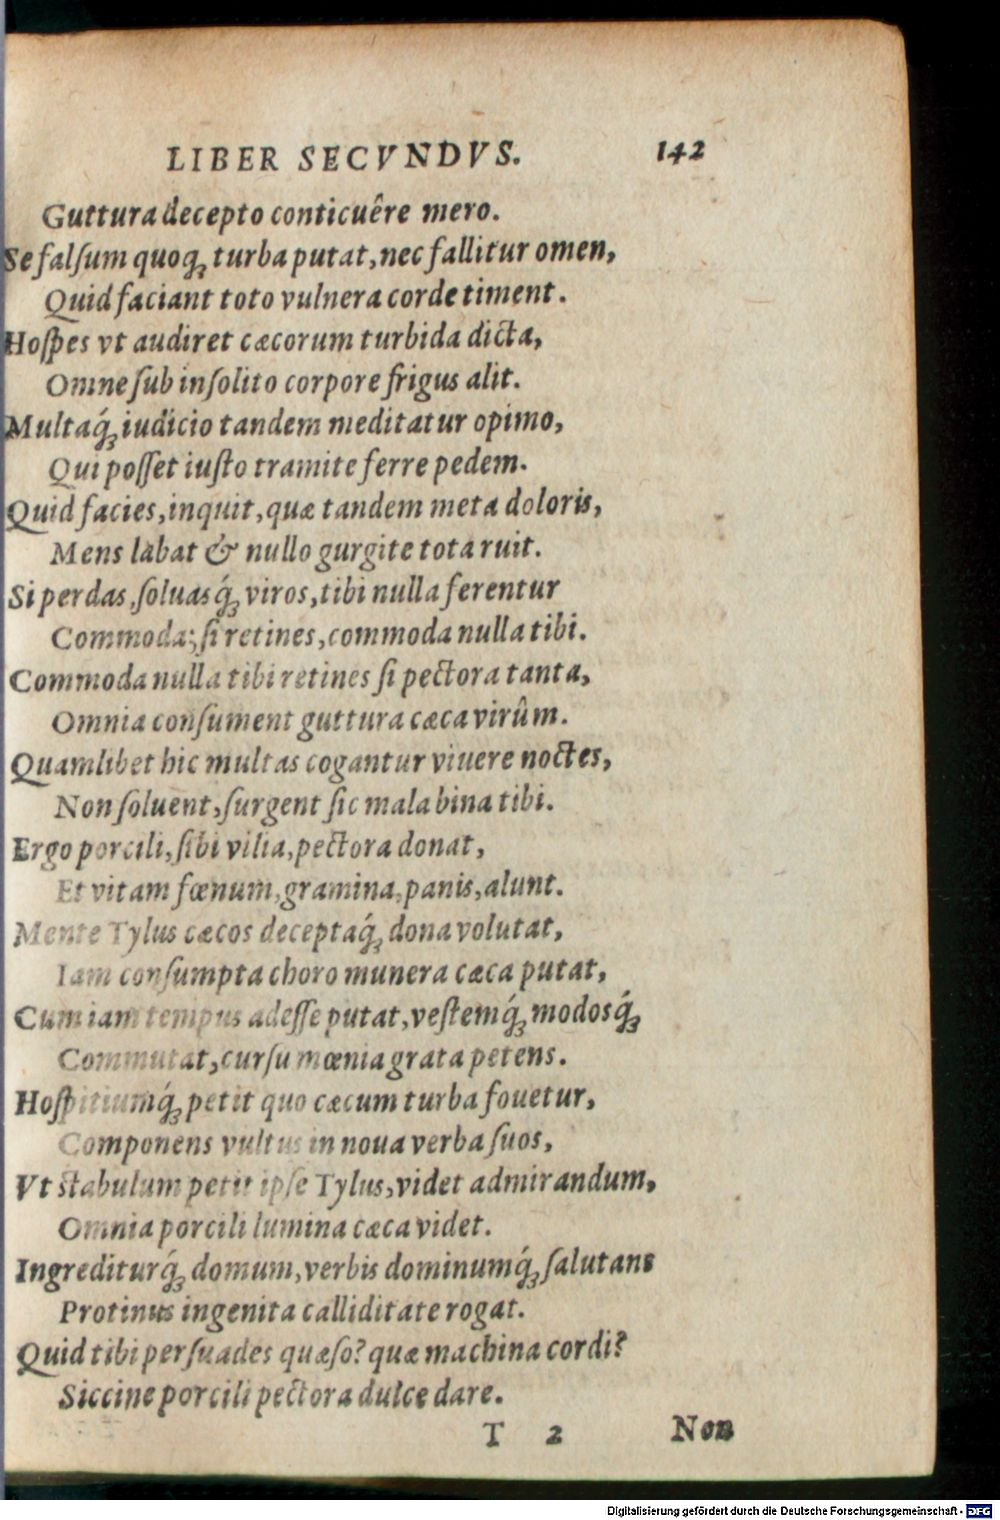 LIBER SECVNDVS. 142
Guttura decepto conticuêre mero.
Se falſum quoqꝫ turba putat, nec fallitur omen,
Quid faciant toto vulnera corde timent.
Hoſpes vt audiret cæcorum turbida dicta,
Omne ſub inſolito corpore frigus alit.
Multaq́ꝫ iudicio tandem meditatur opimo,
Qui poſſet iuſto tramite ferre pedem.
Quid facies, inquit, quæ tandem meta doloris,
Mens labat & nullo gurgite tota ruit.
Si perdas, ſoluasq́ꝫ viros, tibi nulla ferentur
Commoda; ſi retines, commoda nulla tibi.
Commoda nulla tibi retines ſi pectora tanta,
Omnia conſument guttura cæca virûm.
Quamlibet hic multas cogantur viuere noctes,
Non ſoluent, ſurgent ſic mala bina tibi.
Ergo porcili, ſibi vilia, pectora donat,
Et vitam fœnum, gramina, panis, alunt.
Mente Tylus cæcos deceptaq́ꝫ dona volutat,
Iam conſumpta choro munera cæca putat,
Cum iam tempus adeſſe putat, veſtemq́ꝫ modosq́ꝫ
Commutat, curſu mœnia grata petens.
Hoſpitiumq́ꝫ petit quo cæcum turba fouetur,
Componens vultus in noua verba ſuos,
Vt ſtabulum petit ipſe Tylus, videt admirandum,
Omnia porcili lumina cæca videt.
Ingrediturq́ꝫ domum, verbis dominumq́ꝫ ſalutans
Protinus ingenita calliditate rogat.
Quid tibi perſuades quæſo? quæ machina cordi?
Siccine porcili pectora dulce dare.
T 2 Non
Digitalisierung gefördert durch die Deutsche Forschungsgemeinschaft - DFG